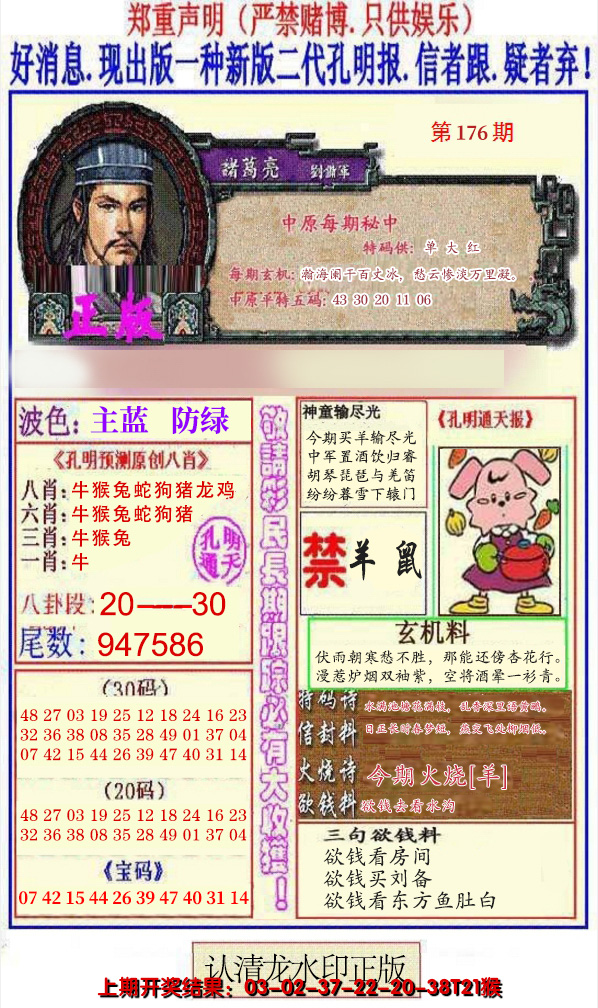 郑重声明（严禁赌博.只供娱乐）
好消息.现出版一种新版二代孔明报.信者跟.疑者弃!
第176期
諸葛亮 劉備軍
中原每期秘中
特码供: 单大红
每期玄机: 瀚海阑干百丈冰，愁云惨淡万里凝。
中原平特五码: 43 30 20 11 06
正版
波色: 主蓝 防绿
《孔明预测原创八肖》
八肖: 牛猴兔蛇狗猪龙鸡
六肖: 牛猴兔蛇狗猪
三肖: 牛猴兔
一肖: 牛
孔明
通天
八卦段: 20----30
尾数: 947586
（30码）
48 27 03 19 25 12 18 24 16 23
32 36 38 08 35 28 49 01 37 04
07 42 15 44 26 39 47 40 31 14
（20码）
48 27 03 19 25 12 18 24 16 23
32 36 38 08 35 28 49 01 37 04
《宝码》
07 42 15 44 26 39 47 40 31 14
敬請彩民長期跟踪必有大收獲！
神童输尽光
今期买羊输尽光
中军置酒饮归客
胡琴琵琶与羌笛
纷纷暮雪下辕门
《孔明通天报》
禁 羊 鼠
玄机料
伏雨朝寒愁不胜，那能还傍杏花行。
漫惹炉烟双袖紫，空将酒晕一衫青。
特码诗 水满池塘花满枝，乱香深里语黄鹂。
信封料 日正长时春梦短，燕交飞处柳烟低。
火烧诗 今期火烧[羊]
欲钱料 欲钱去看水沟
三句欲钱料
欲钱看房间
欲钱买刘备
欲钱看东方鱼肚白
认清龙水印正版
上期开奖结果：03-02-37-22-20-38T21猴